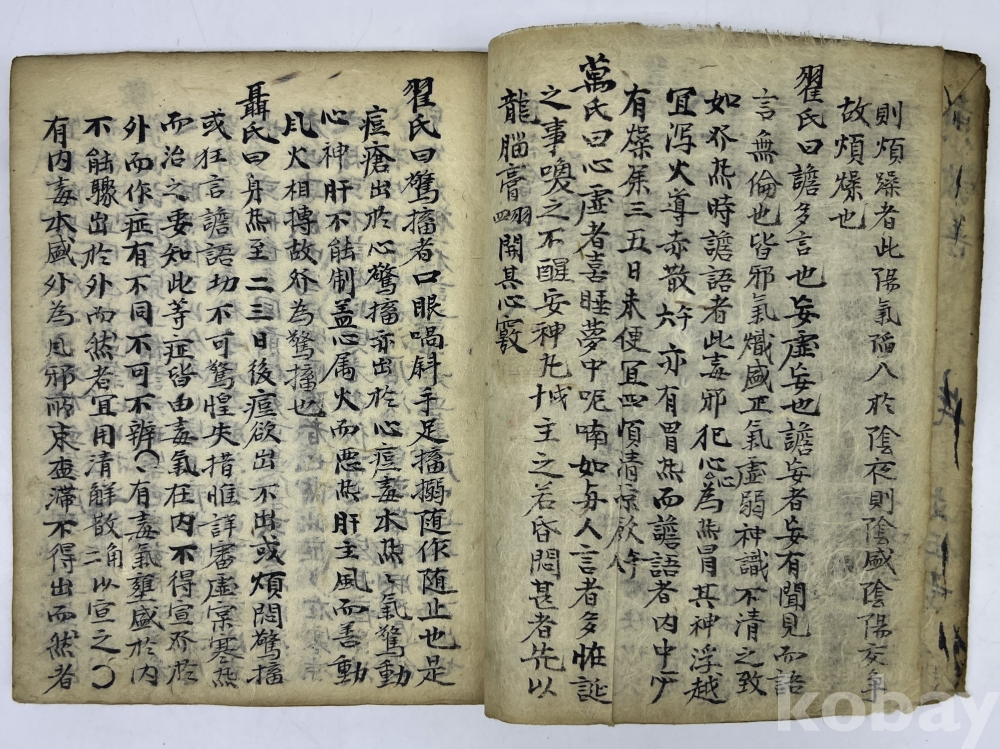 則煩躁者此陽氣陷入於陰夜則陰盛陰陽交爭
故煩燥也
翟氏曰譫多言也妄虛妄也譫妄者妄有聞見而語
言無倫也皆邪氣熾盛正氣虛弱神識不清之致
如芥热時譫語者此毒邪犯心心為热冒其神浮越
宜泻火導赤散六 亦有胃热而譫語者内中少
有燥屎三五日未便宜四順清凉飲
萬氏曰心虛者喜睡夢中呢喃如與人言者多怪誕
之事喚之不醒安神丸 主之若昏悶甚者先以
龍腦膏 開其心竅
翟氏曰驚搐者口眼喎斜手足搐搦随作随止也是
痘瘡出於心驚搐亦出於心痘毒本热热氣驚動
心神肝不能制盖心属火而惡热肝主風而善動
凨火相搏故芥為驚搐也
聶氏曰身热至二三日後痘欲出不出或煩悶驚搐
或狂言譫語切不可驚惶失措惟詳審虛実寒热
而治之要知此等症皆由毒氣在内不得宣芥於
外而作症有不同不可不辨〇有毒氣壅盛於内
不能驟出於外而然者宜用清解散 以宣之〇
有内毒本盛外為凨邪所束壅滞不得出而然者
kobay